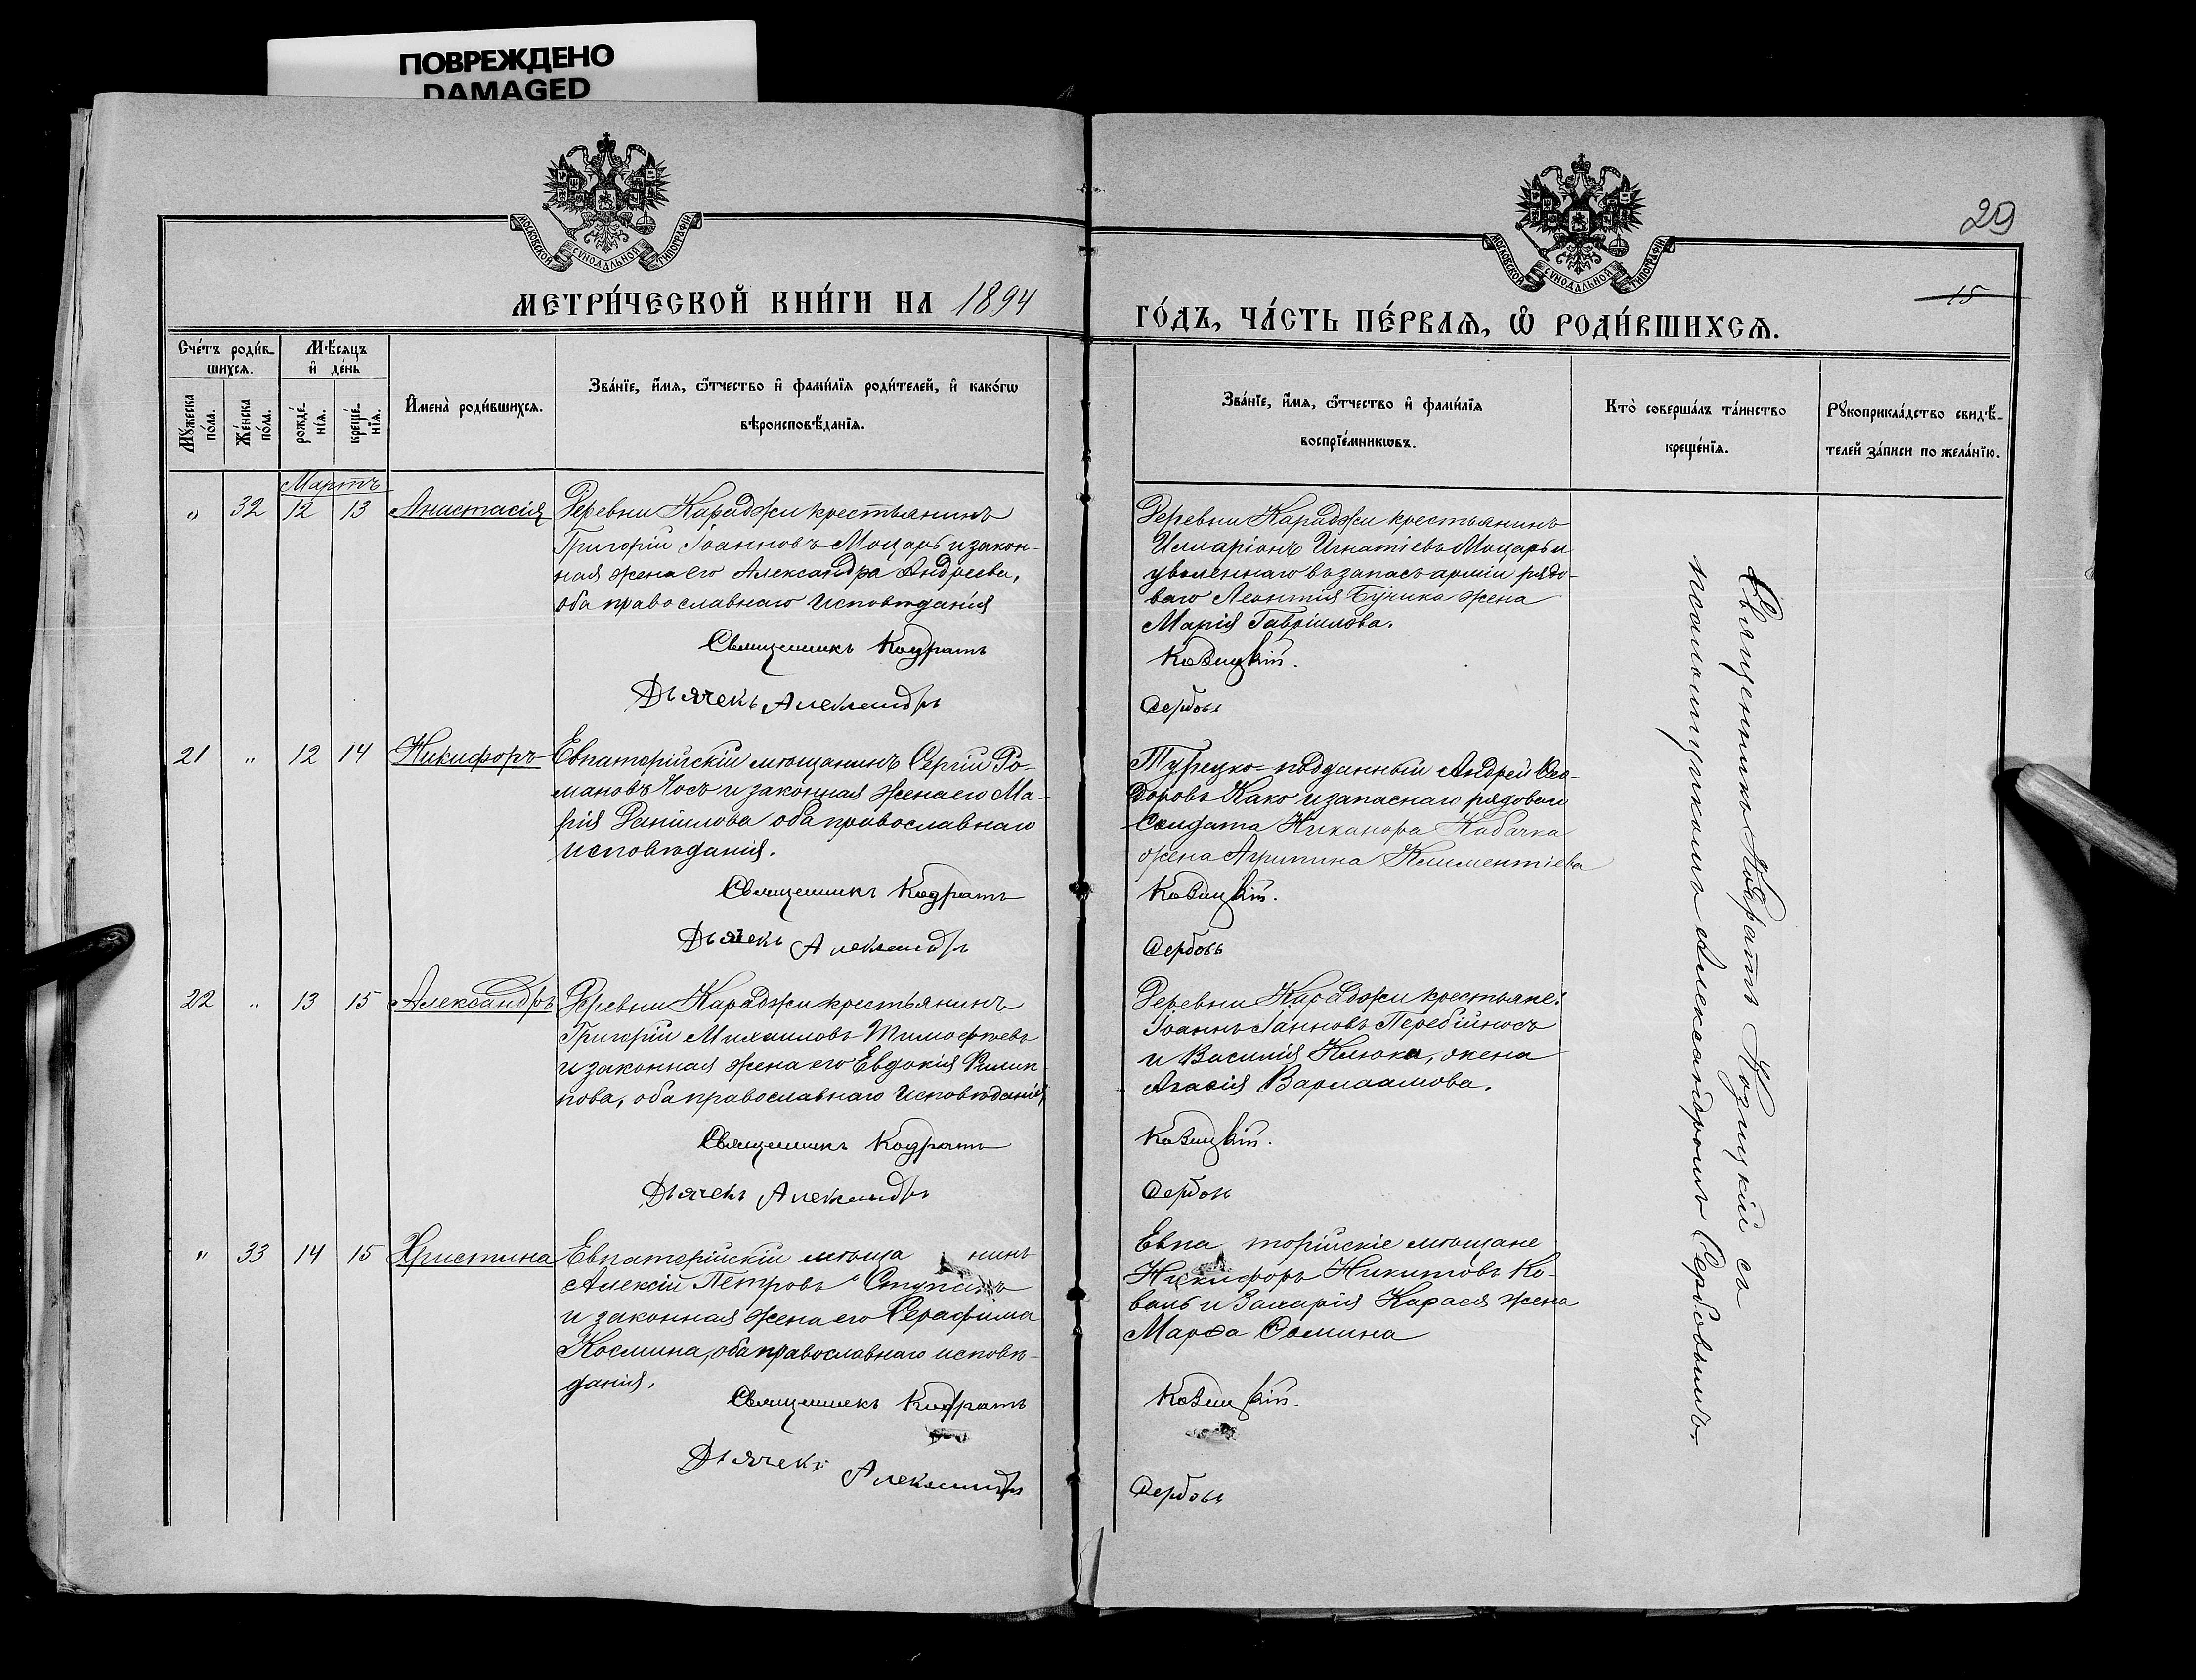 ПОВРЕЖДЕНО
DAMAGED
МОСКОВСКОЙ СѴНОДАЛЬНОЙ ТИПОГРАФІИ
МОСКОВСКОЙ СѴНОДАЛЬНОЙ ТИПОГРАФІИ
29
15
МЕТРИ́ЧЕСКОЙ КНИ́ГИ НА 1894
ГО́ДЪ, ЧА́СТЬ ПЕ́РВАѦ, Ѽ РОДИ́ВШИХСѦ.
Сче́тъ роди́в-
шихсѧ.
Мꙋ́жеска по́ла.
Же́нска по́ла.
Мѣ́сѧцъ
и҆ де́нь
рожде́-
нїѧ.
креще́-
нїѧ.
И҆мена̀ роди́вшихсѧ.
Зва́нїе, и҆́мѧ, ѻ҆́тчество и҆ фами́лїѧ роди́телей, и҆ како́гѡ
вѣроисповѣ́данїѧ.
Зва́нїе, и҆́мѧ, ѻ҆́тчество и҆ фами́лїѧ
воспрїе́мникѡвъ.
Кто̀ соверша́лъ та́инство
креще́нїѧ.
Рꙋкоприкла́дство свидѣ́-
телей за́писи по жела́нїю.
Мартъ
" 32 12 13 Анастасія
Деревни Караджи крестьянинъ
Григорій Іоанновъ Моцарь и закон-
ная жена его Александра Андреева,
оба православнаго исповѣданія
Священникъ Кодратъ
Дьячекъ Александръ
Деревни Караджи крестьянинъ
Илларіонъ Игнатіевъ Моцарь и
уволеннаго въ запасъ арміи рядо-
ваго Леонтія Бучика жена
Марія Гавріилова.
Козицкій.
Сербовъ
21 " 12 14 Никифоръ
Евпаторійскій мѣщанинъ Сергій Ро-
мановъ Чосъ и законная жена его Ма-
рія Даніилова оба православнаго
исповѣданія.
Священникъ Кодратъ
Дьячекъ Александръ
Турецко-подданный Андрей Ѳео-
доровъ Како и запаснаго рядоваго
Солдата Никанора Кабачка
жена Агрипина Климентіева
Козицкій.
Сербовъ
22 " 13 15 Александръ
Деревни Караджи крестьянинъ
Григорій Михаиловъ Тимофѣевъ
и законная жена его Евдокія Филип
пова, оба православнаго исповѣданія,
Священникъ Кодратъ
Дьячекъ Александръ
Деревни Караджи крестьяне:
Іоаннъ Іанновъ Перебійносъ
и Василія Клюка, жена
Агафія Варлаамова.
Козицкій.
Сербовъ
" 33 14 15 Христина
Евпаторійскій мѣща нинъ
Алексій Петровъ
и законная жена его Серафима
Космина, оба православнаго исповѣ-
данія.
Священникъ Кодратъ
Дьячекъ Александръ
Евпа торійскіе мѣщане
Никифоръ Никитовъ Ко-
валь и Захарія Карася жена
Марѳа Ѳомина
Козицкій.
Сербовъ
Священникъ Кодратъ Козицкій съ
псаломщикомъ Александромъ Сербовымъ.